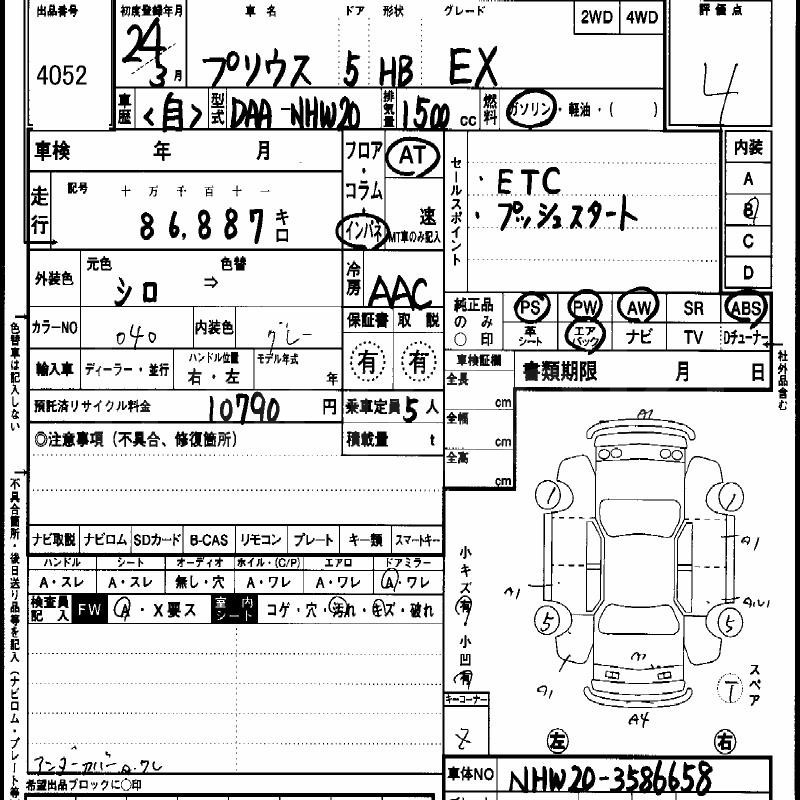 出品番号 初度登録年月 車名 ドア 形状 グレード 2WD 4WD 評価点
4052 24 3月 プリウス 5 HB EX 4
車歴 <自> 型式 DAA-NHW20 排気量 1500 cc 燃料 ガソリン・軽油・( )
車検 年 月 フロア・コラム・インパネ AT 速 MT車のみ記入
走行 記号 十万千百十一
86,887 キロ
セールスポイント
・ETC
・プッシュスタート
内装
A
B
C
D
外装色 元色 シロ ⇒ 色替
冷房 AAC
カラーNO 040 内装色 グレー
保証書 有 取説 有
純正品のみ〇印 PS PW AW SR ABS
革シート エアバック ナビ TV Dチューナー
社外品含む
輸入車 ディーラー・並行 ハンドル位置 右・左 モデル年式 年
車検証欄 書類期限 月 日
全長 cm
全幅 cm
全高 cm
預託済リサイクル料金 10790 円 乗車定員 5 人
積載量 t
◎注意事項(不具合、修復箇所)
ナビ取説 ナビロム SDカード B-CAS リモコン プレート キー類 スマートキー
ハンドル シート オーディオ ホイル・(C/P) エアロ ドアミラー
A・スレ A・スレ 無し・穴 A・ワレ A・ワレ A・ワレ
検査員記入 FW A・X要ス 室内シート コゲ・穴・汚れ・キズ・破れ
アンダーカバーA.ワレ
希望出品ブロックに〇印
色替車は記入しない
不具合箇所・後日送り品等を記入(ナビロム・プレート等
小キズ 有
小凹 有
キーコーナー
A1
1 1
A1
A1
5 5
A1
A4
スペア
T
左 右
車体NO NHW20-3586658